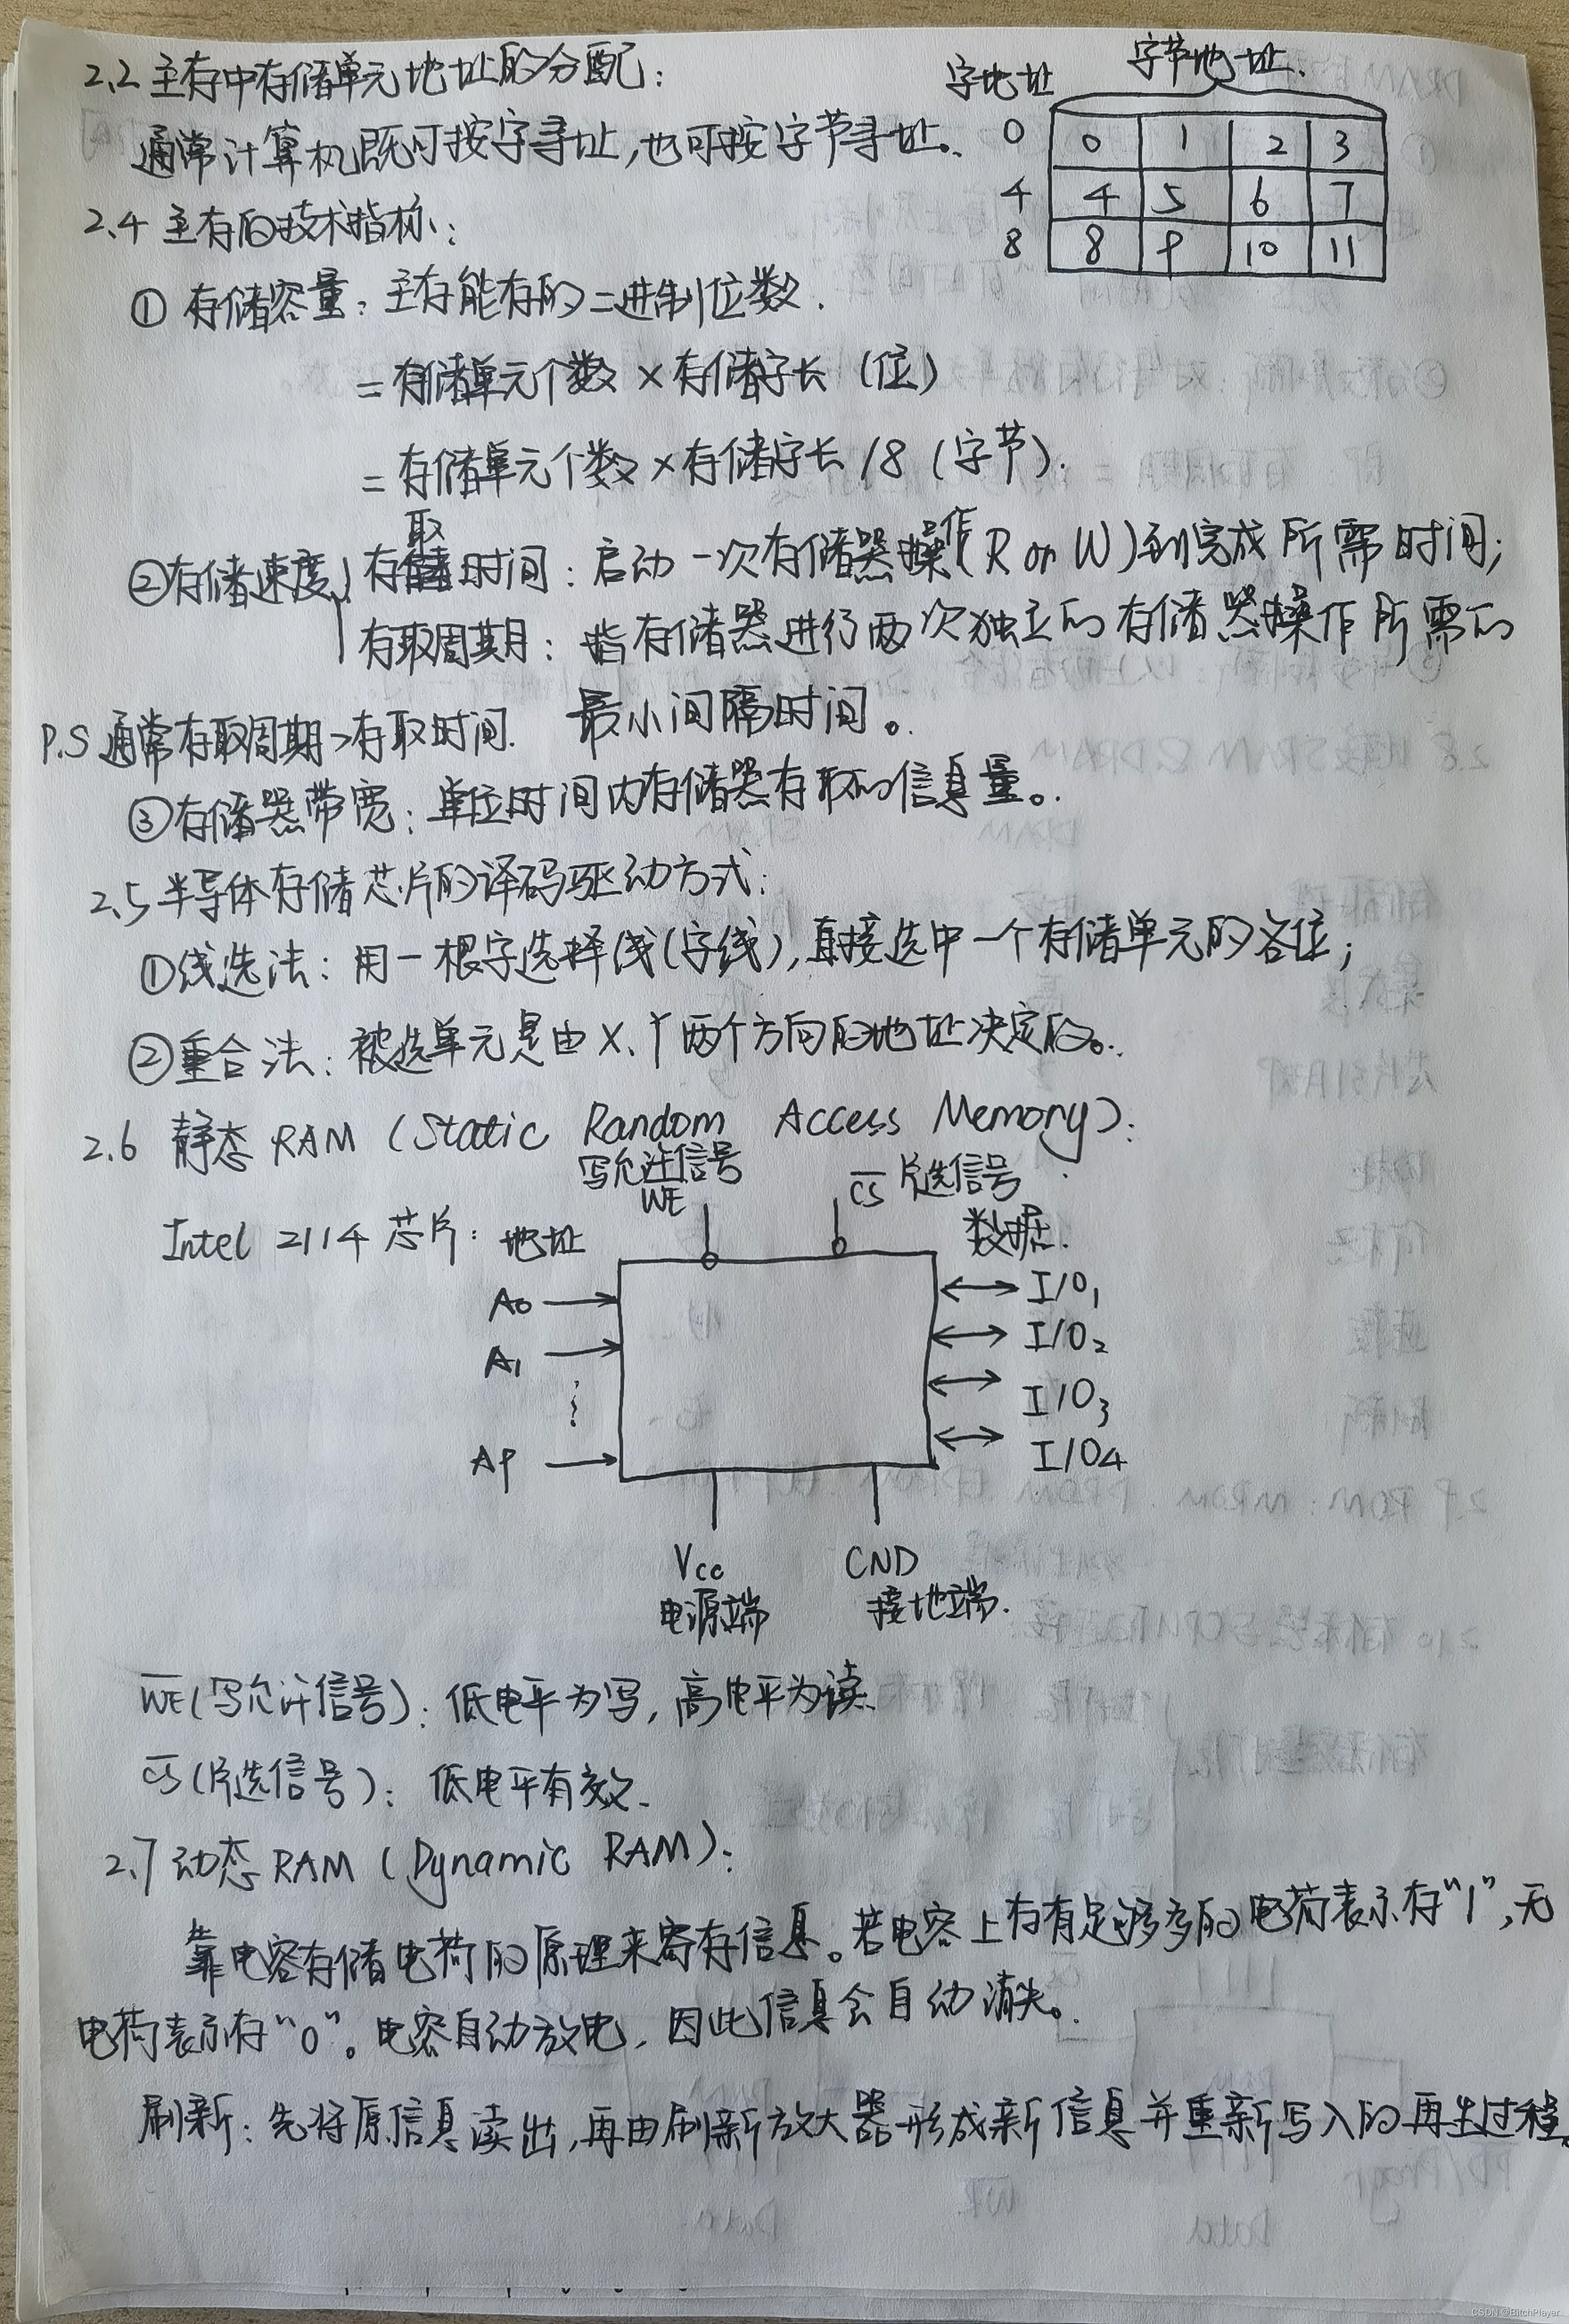 2.2 主存中存储单元地址的分配：
字地址 字节地址.
通常计算机既可按字寻址,也可按字节寻址。
0 0 1 2 3
4 4 5 6 7
8 8 9 10 11
2.4 主存的技术指标：
① 存储容量：主存能存的二进制位数.
= 存储单元个数 × 存储字长 (位)
= 存储单元个数 × 存储字长 /8 (字节).
②存储速度 存取时间：启动一次存储器操作(R or W)到完成所需时间;
存取周期：指存储器进行两次独立的存储器操作所需的
最小间隔时间。
P.S 通常存取周期>存取时间.
③存储器带宽：单位时间内存储器存取的信息量。
2.5 半导体存储芯片的译码驱动方式：
①线选法：用一根字选择线(字线),直接选中一个存储单元的各位;
②重合法：被选单元是由X、Y两个方向的地址决定的。
2.6 静态 RAM (Static Random Access Memory):
写允许信号
WE
CS 片选信号
Intel 2114 芯片：地址
数据.
A0
A1
A9
I/O1
I/O2
I/O3
I/O4
Vcc
电源端
GND
接地端.
WE(写允许信号)：低电平为写,高电平为读
CS(片选信号)：低电平有效.
2.7 动态 RAM (Dynamic RAM):
靠电容存储电荷的原理来寄存信息。若电容上存有足够多的电荷表示存"1",无
电荷表示存"0"。电容自动放电,因此信息会自动消失。
刷新：先将原信息读出,再由刷新放大器形成新信息并重新写入的再生过程。
CSDN @BitchPlayer